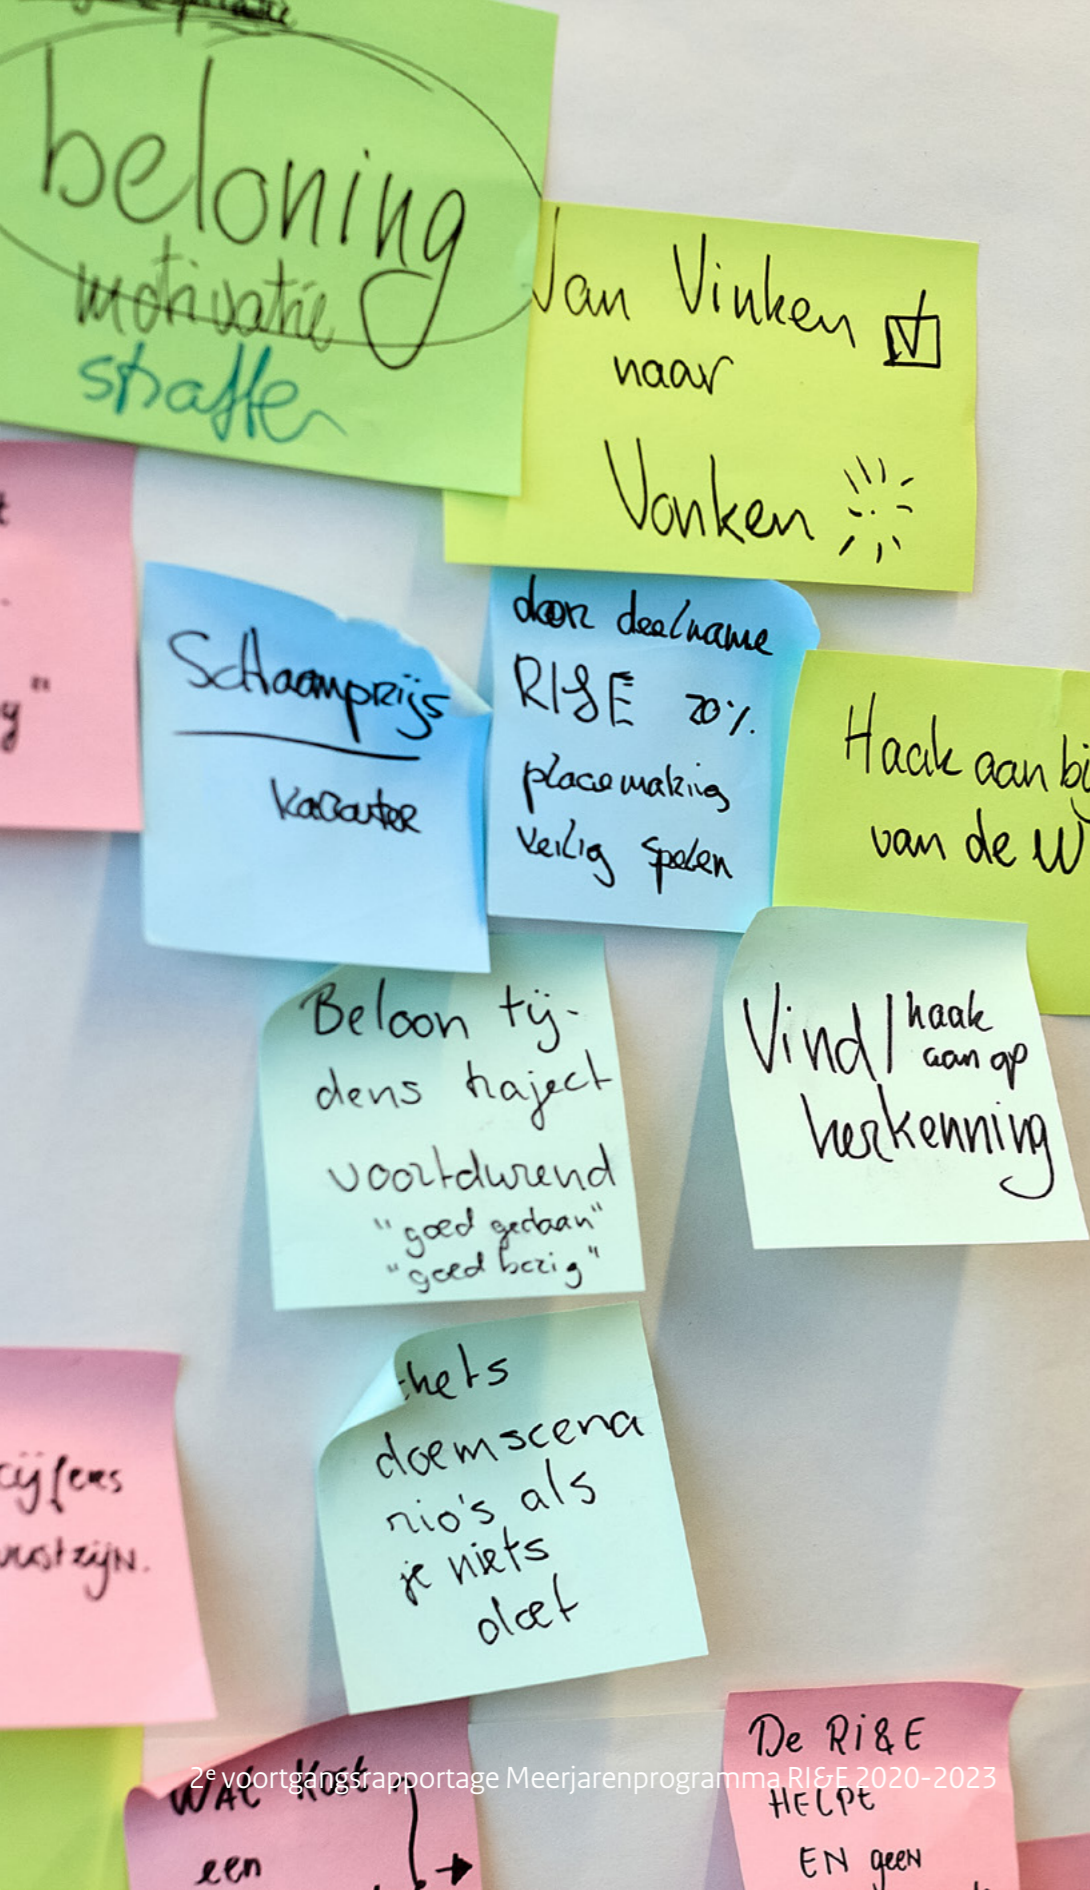 beloning
motivatie
straffen
Van Vinken
naar
Vonken
t
g"
Schaamprijs
karakter
door deelname
RI&E 20%
placemaking
veilig spelen
Haak aan bij
van de W
Beloon tij-
dens traject
voortdurend
"goed gedaan"
"goed bezig"
Vind / haak
aan op
herkenning
cijfers
zijn.
schets
doemscena
rio's als
je niets
doet
Wat kost
een
De RI&E
HELPT
EN geen
2e voortgangsrapportage Meerjarenprogramma RI&E 2020-2023